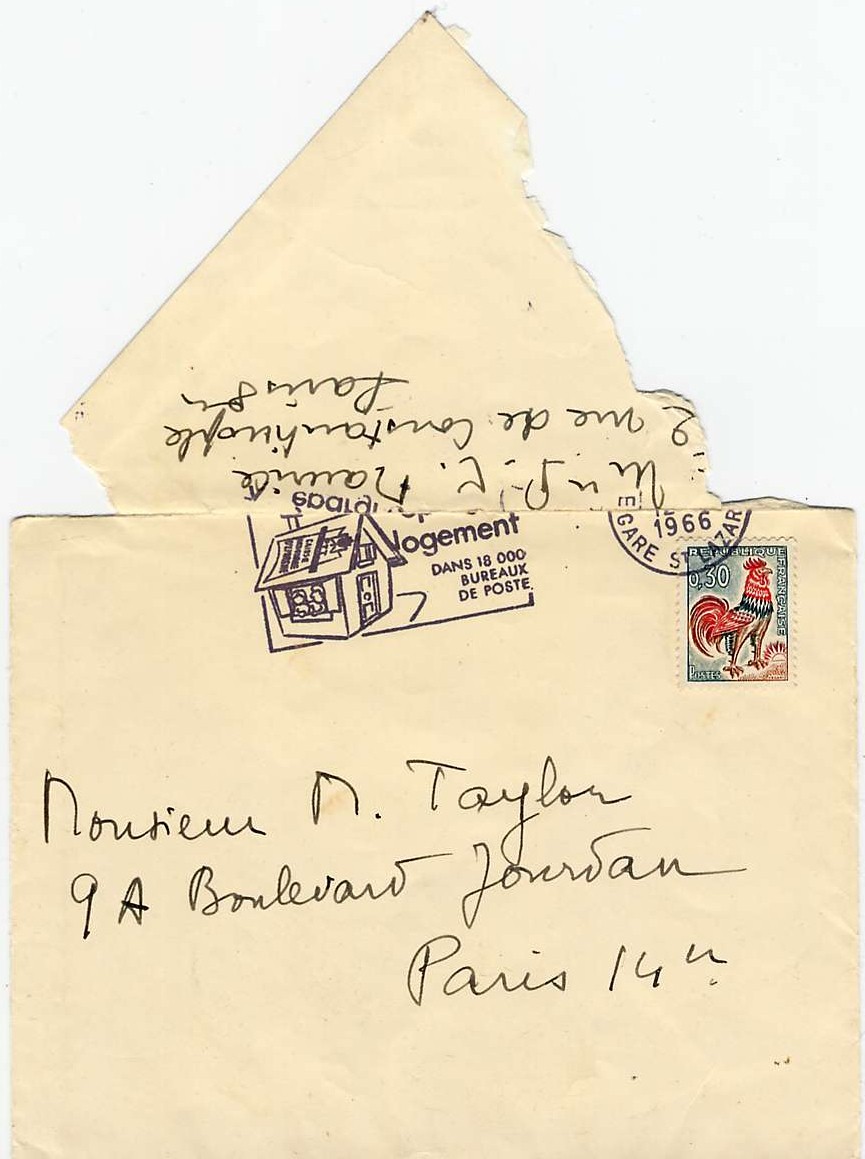 Maurice
2 rue de Constantinople
Paris 8e
épargne
logement
DANS 18 000
BUREAUX
DE POSTE
1966
GARE ST LAZAR
REPUBLIQUE FRANÇAISE
0,30
POSTES
Monsieur M. Taylor
9 A Boulevard Jourdan
Paris 14e